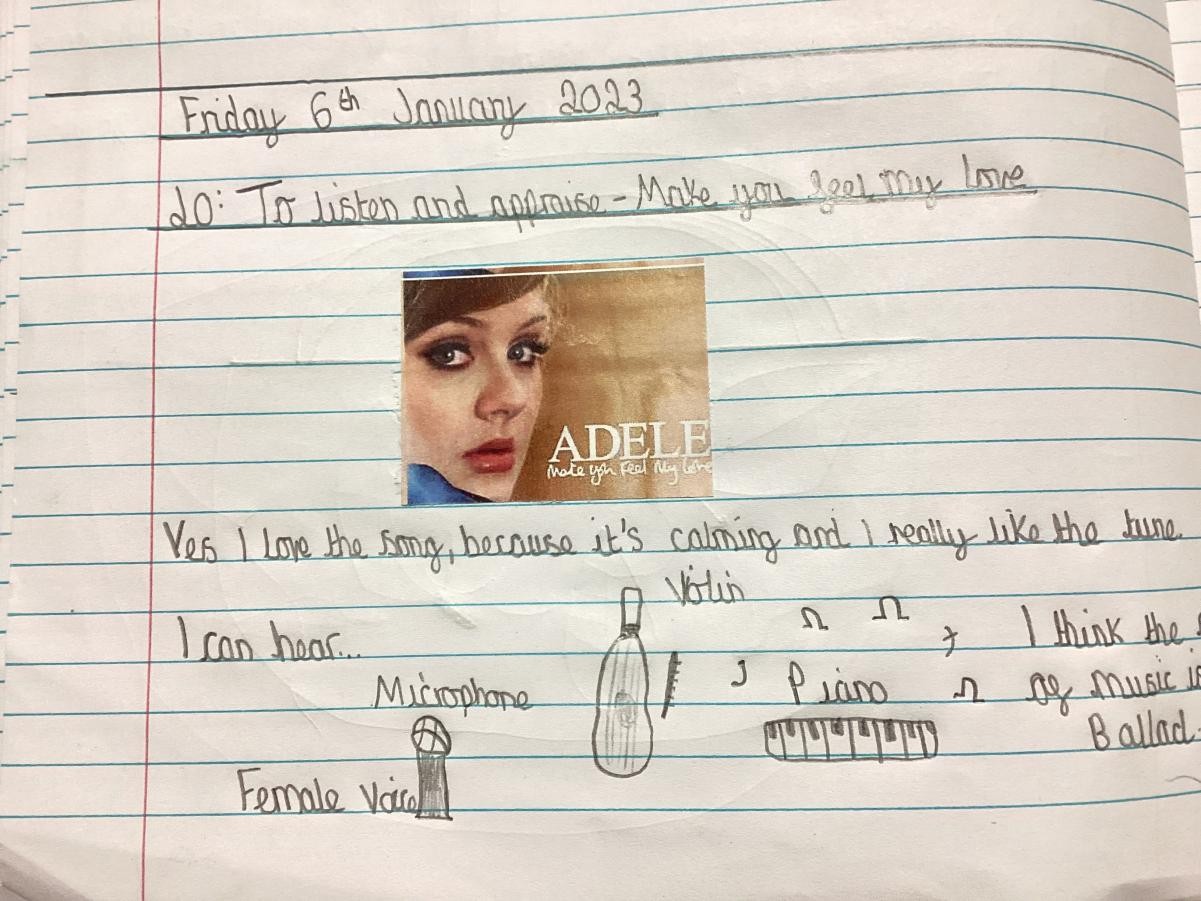 Friday 6th January 2023
LO: To listen and appraise - Make you feel My Love
ADELE
Make you Feel My Love
Yes I love the song, because it's calming and I really like the tune
Volin
I can hear...
I think the
Microphone
Piano
of music is
Ballad
Female Voice